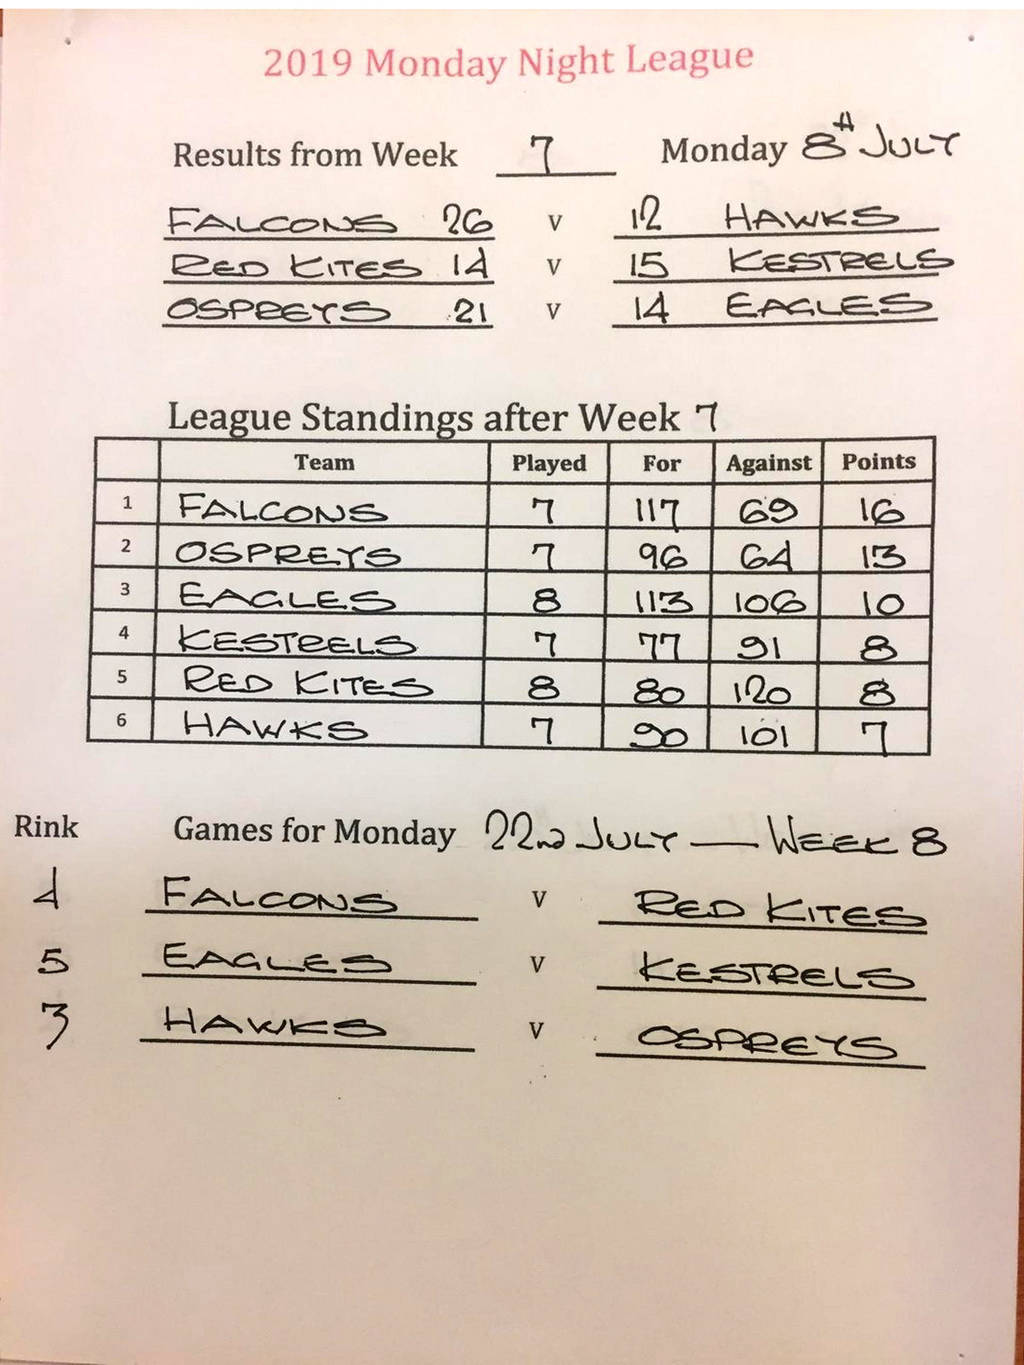 2019 Monday Night League
Results from Week 7 Monday 8th JULY
FALCONS 26 v 12 HAWKS
RED KITES 14 v 15 KESTRELS
OSPREYS 21 v 14 EAGLES
League Standings after Week 7
Team Played For Against Points
1 FALCONS 7 117 69 16
2 OSPREYS 7 96 64 13
3 EAGLES 8 113 106 10
4 KESTRELS 7 77 91 8
5 RED KITES 8 80 120 8
6 HAWKS 7 90 101 7
Rink Games for Monday 22nd JULY — WEEK 8
4 FALCONS v RED KITES
5 EAGLES v KESTRELS
3 HAWKS v OSPREYS